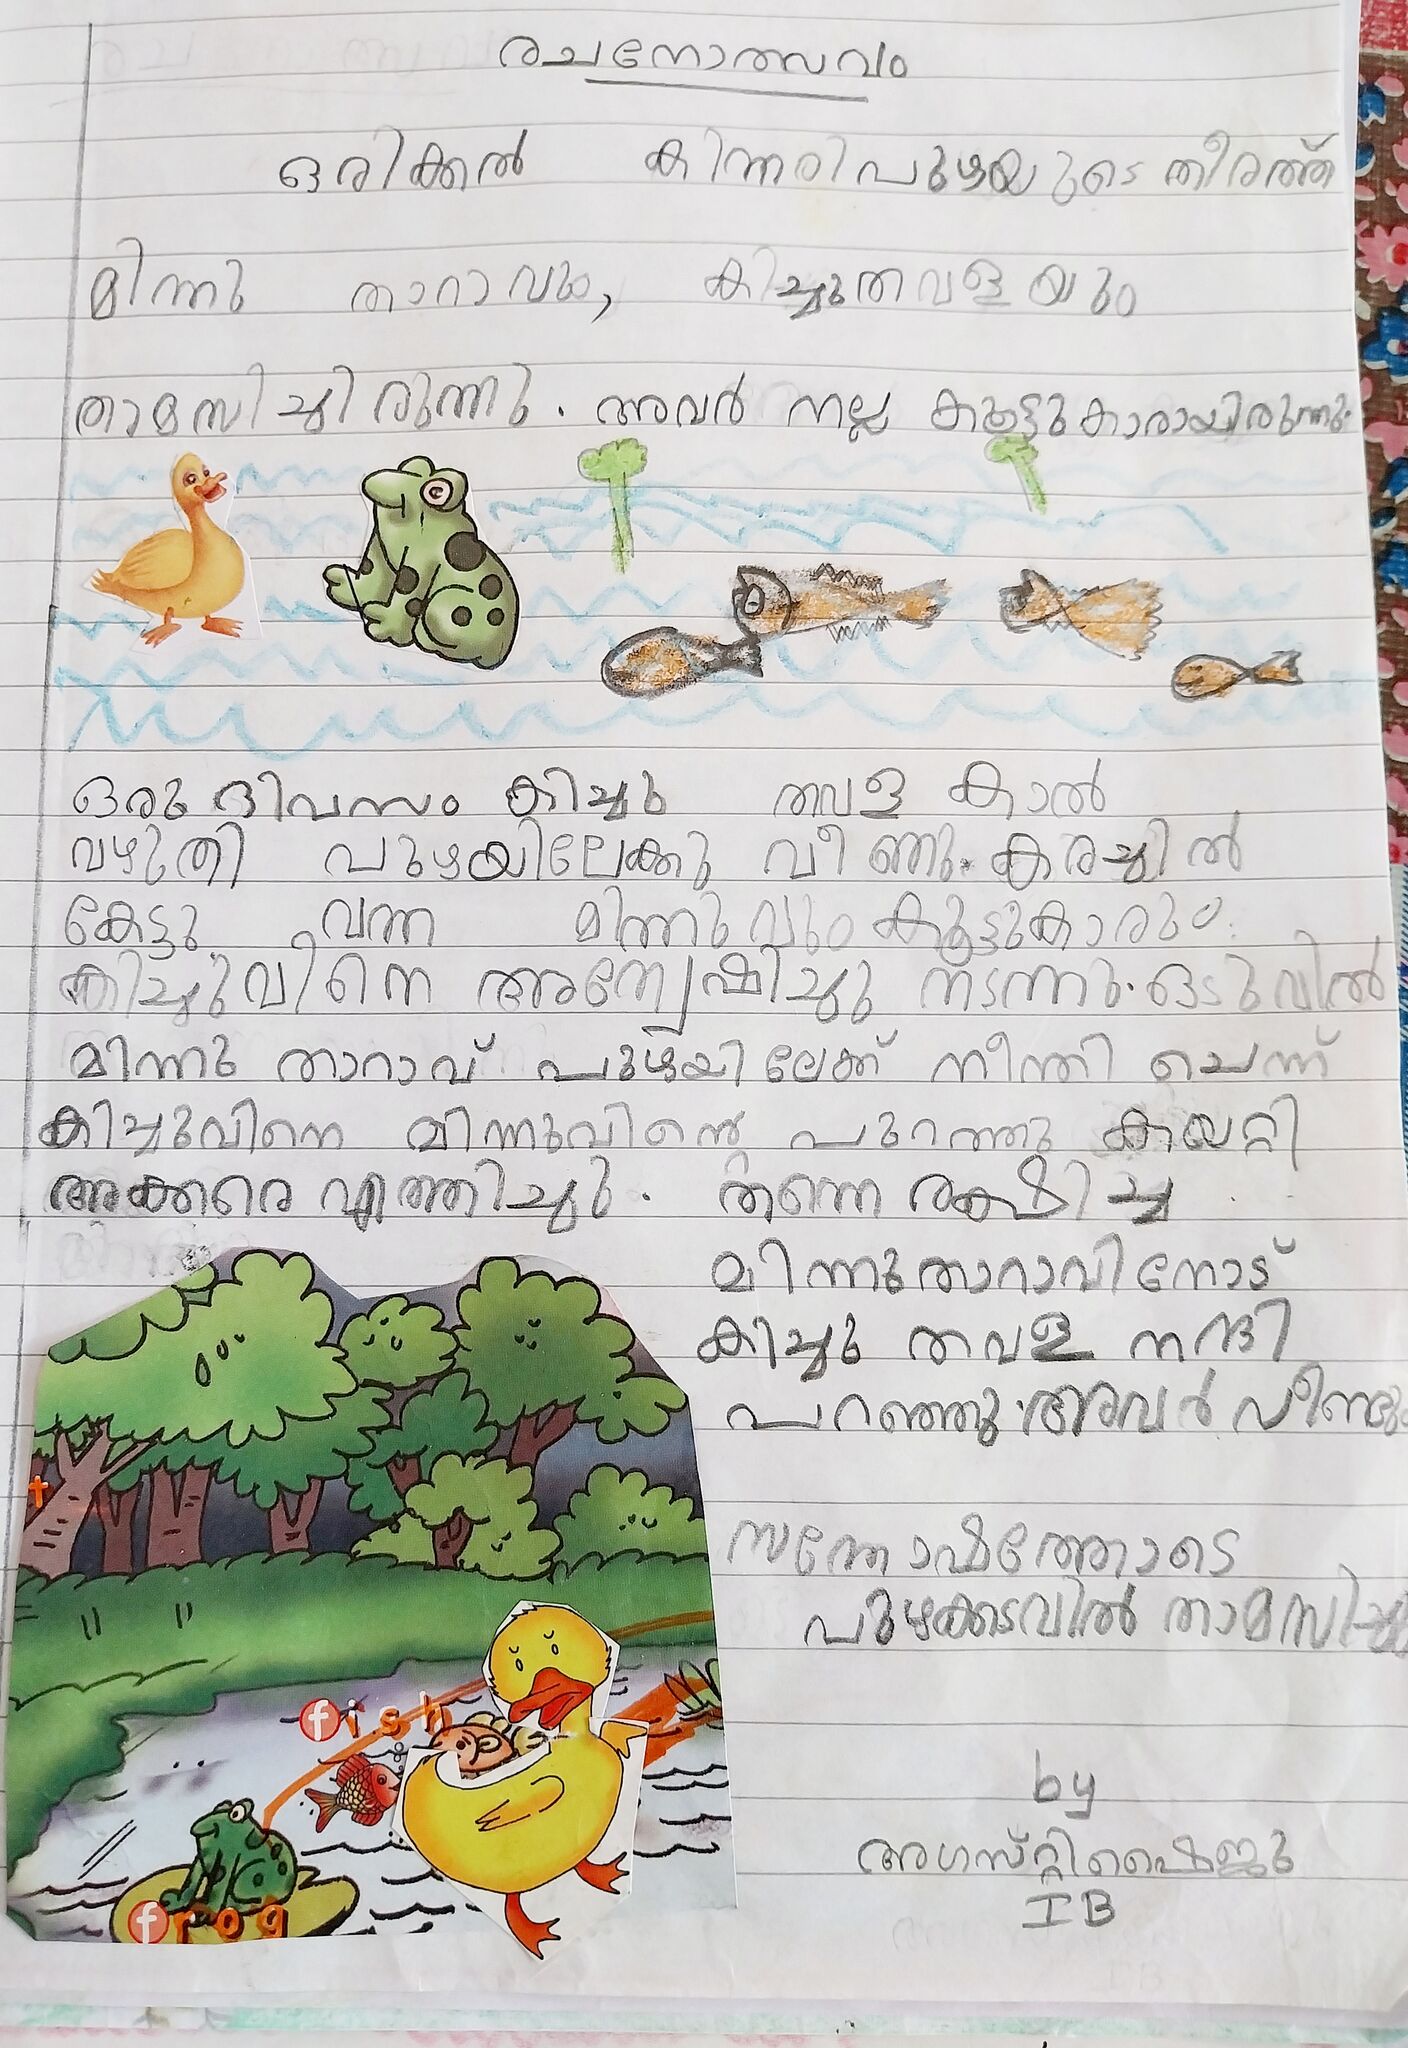 രചനോത്സവം
ഒരിക്കൽ കിന്നരിപുഴയുടെ തീരത്ത്
മിന്നു താറാവും, കിച്ചുതവളയും
താമസിച്ചിരുന്നു. അവർ നല്ല കൂട്ടുകാരായിരുന്നു.
ഒരു ദിവസം കിച്ചു തവള കാൽ
വഴുതി പുഴയിലേക്കു വീണു. കരച്ചിൽ
കേട്ടു വന്ന മിന്നുവും കൂട്ടുകാരും
കിച്ചുവിനെ അന്വേഷിച്ചു നടന്നു. ഒടുവിൽ
മിന്നു താറാവ് പുഴയിലേക്ക് നീന്തി ചെന്ന്
കിച്ചുവിനെ മിന്നുവിന്റെ പുറത്തു കയറ്റി
അക്കരെ എത്തിച്ചു. തന്നെ രക്ഷിച്ച
മിന്നുതാറാവിനോട്
കിച്ചു തവള നന്ദി
പറഞ്ഞു. അവർ വീണ്ടും
സന്തോഷത്തോടെ
പുഴക്കടവിൽ താമസിച്ചു
fish
frog
by
അഗസ്റ്റിഷൈജു
IB